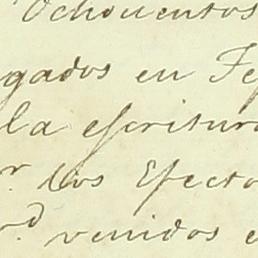 Ochocientos
gados en Fe
la escritura
r los Efecto
rd. venidos e